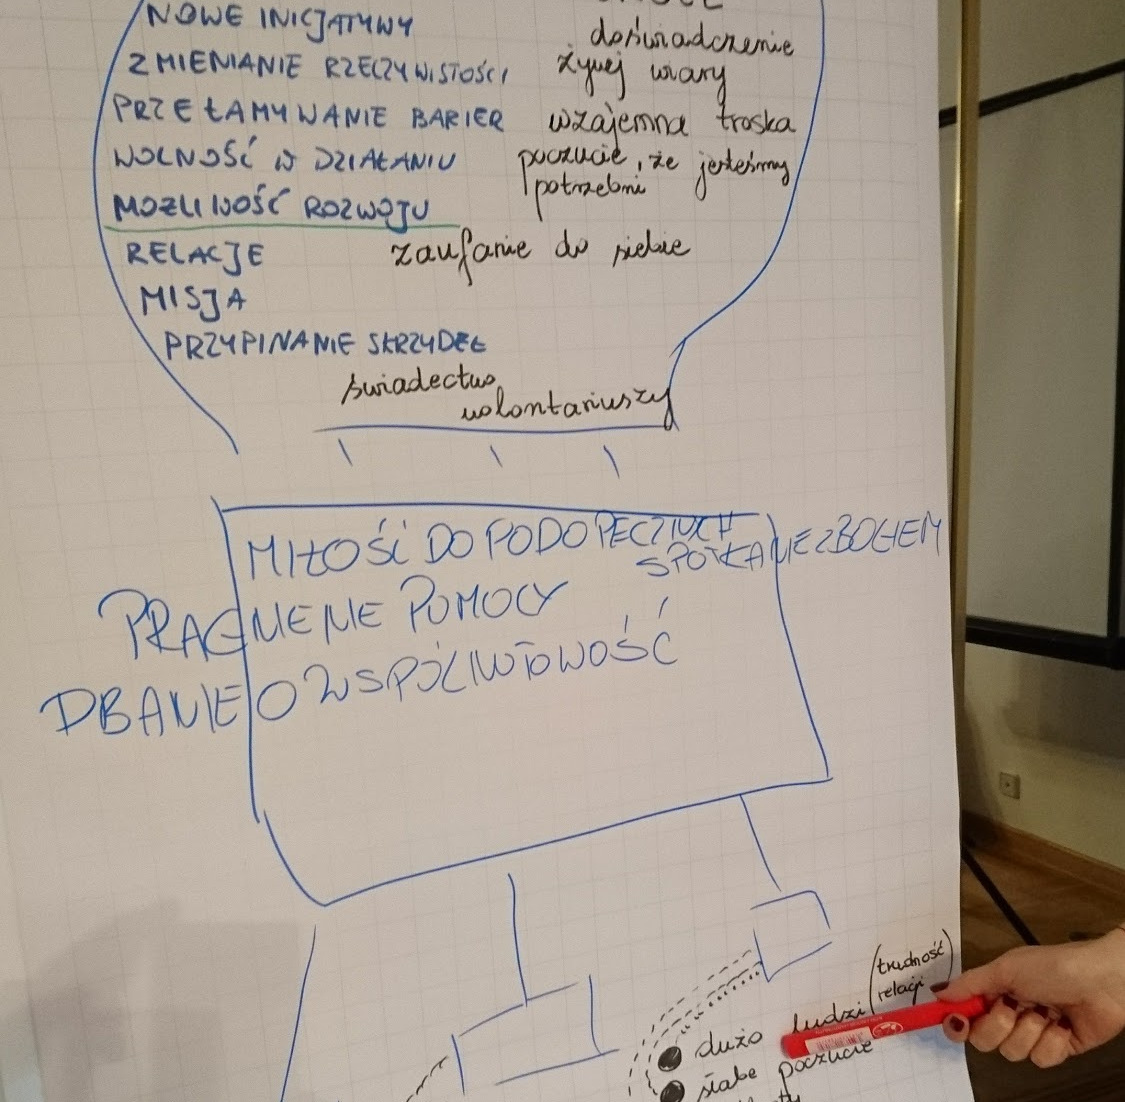 NOWE INICJATYWY
ZMIENIANIE RZECZYWISTOŚCI
PRZEŁAMYWANIE BARIER
WOLNOŚĆ W DZIAŁANIU
MOŻLIWOŚĆ ROZWOJU
RELACJE
MISJA
PRZYPINANIE SKRZYDEŁ
doświadczenie
żywej wiary
wzajemna troska
poczucie, że jesteśmy
potrzebni
zaufanie do siebie
świadectwo
wolontariuszy
MIŁOŚĆ DO PODOPIECZNYCH
SPOTKANIE Z BOGIEM
PRAGNIENIE POMOCY
DBANIE O WSPÓLNOTOWOŚĆ
dużo ludzi (trudność
relacji)
słabe poczucie